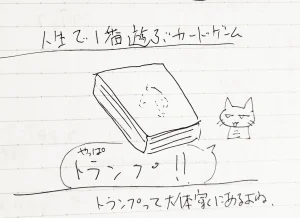 人生で1番遊ぶカードゲーム
やっぱ
トランプ!!
トランプって大体家にあるよね.